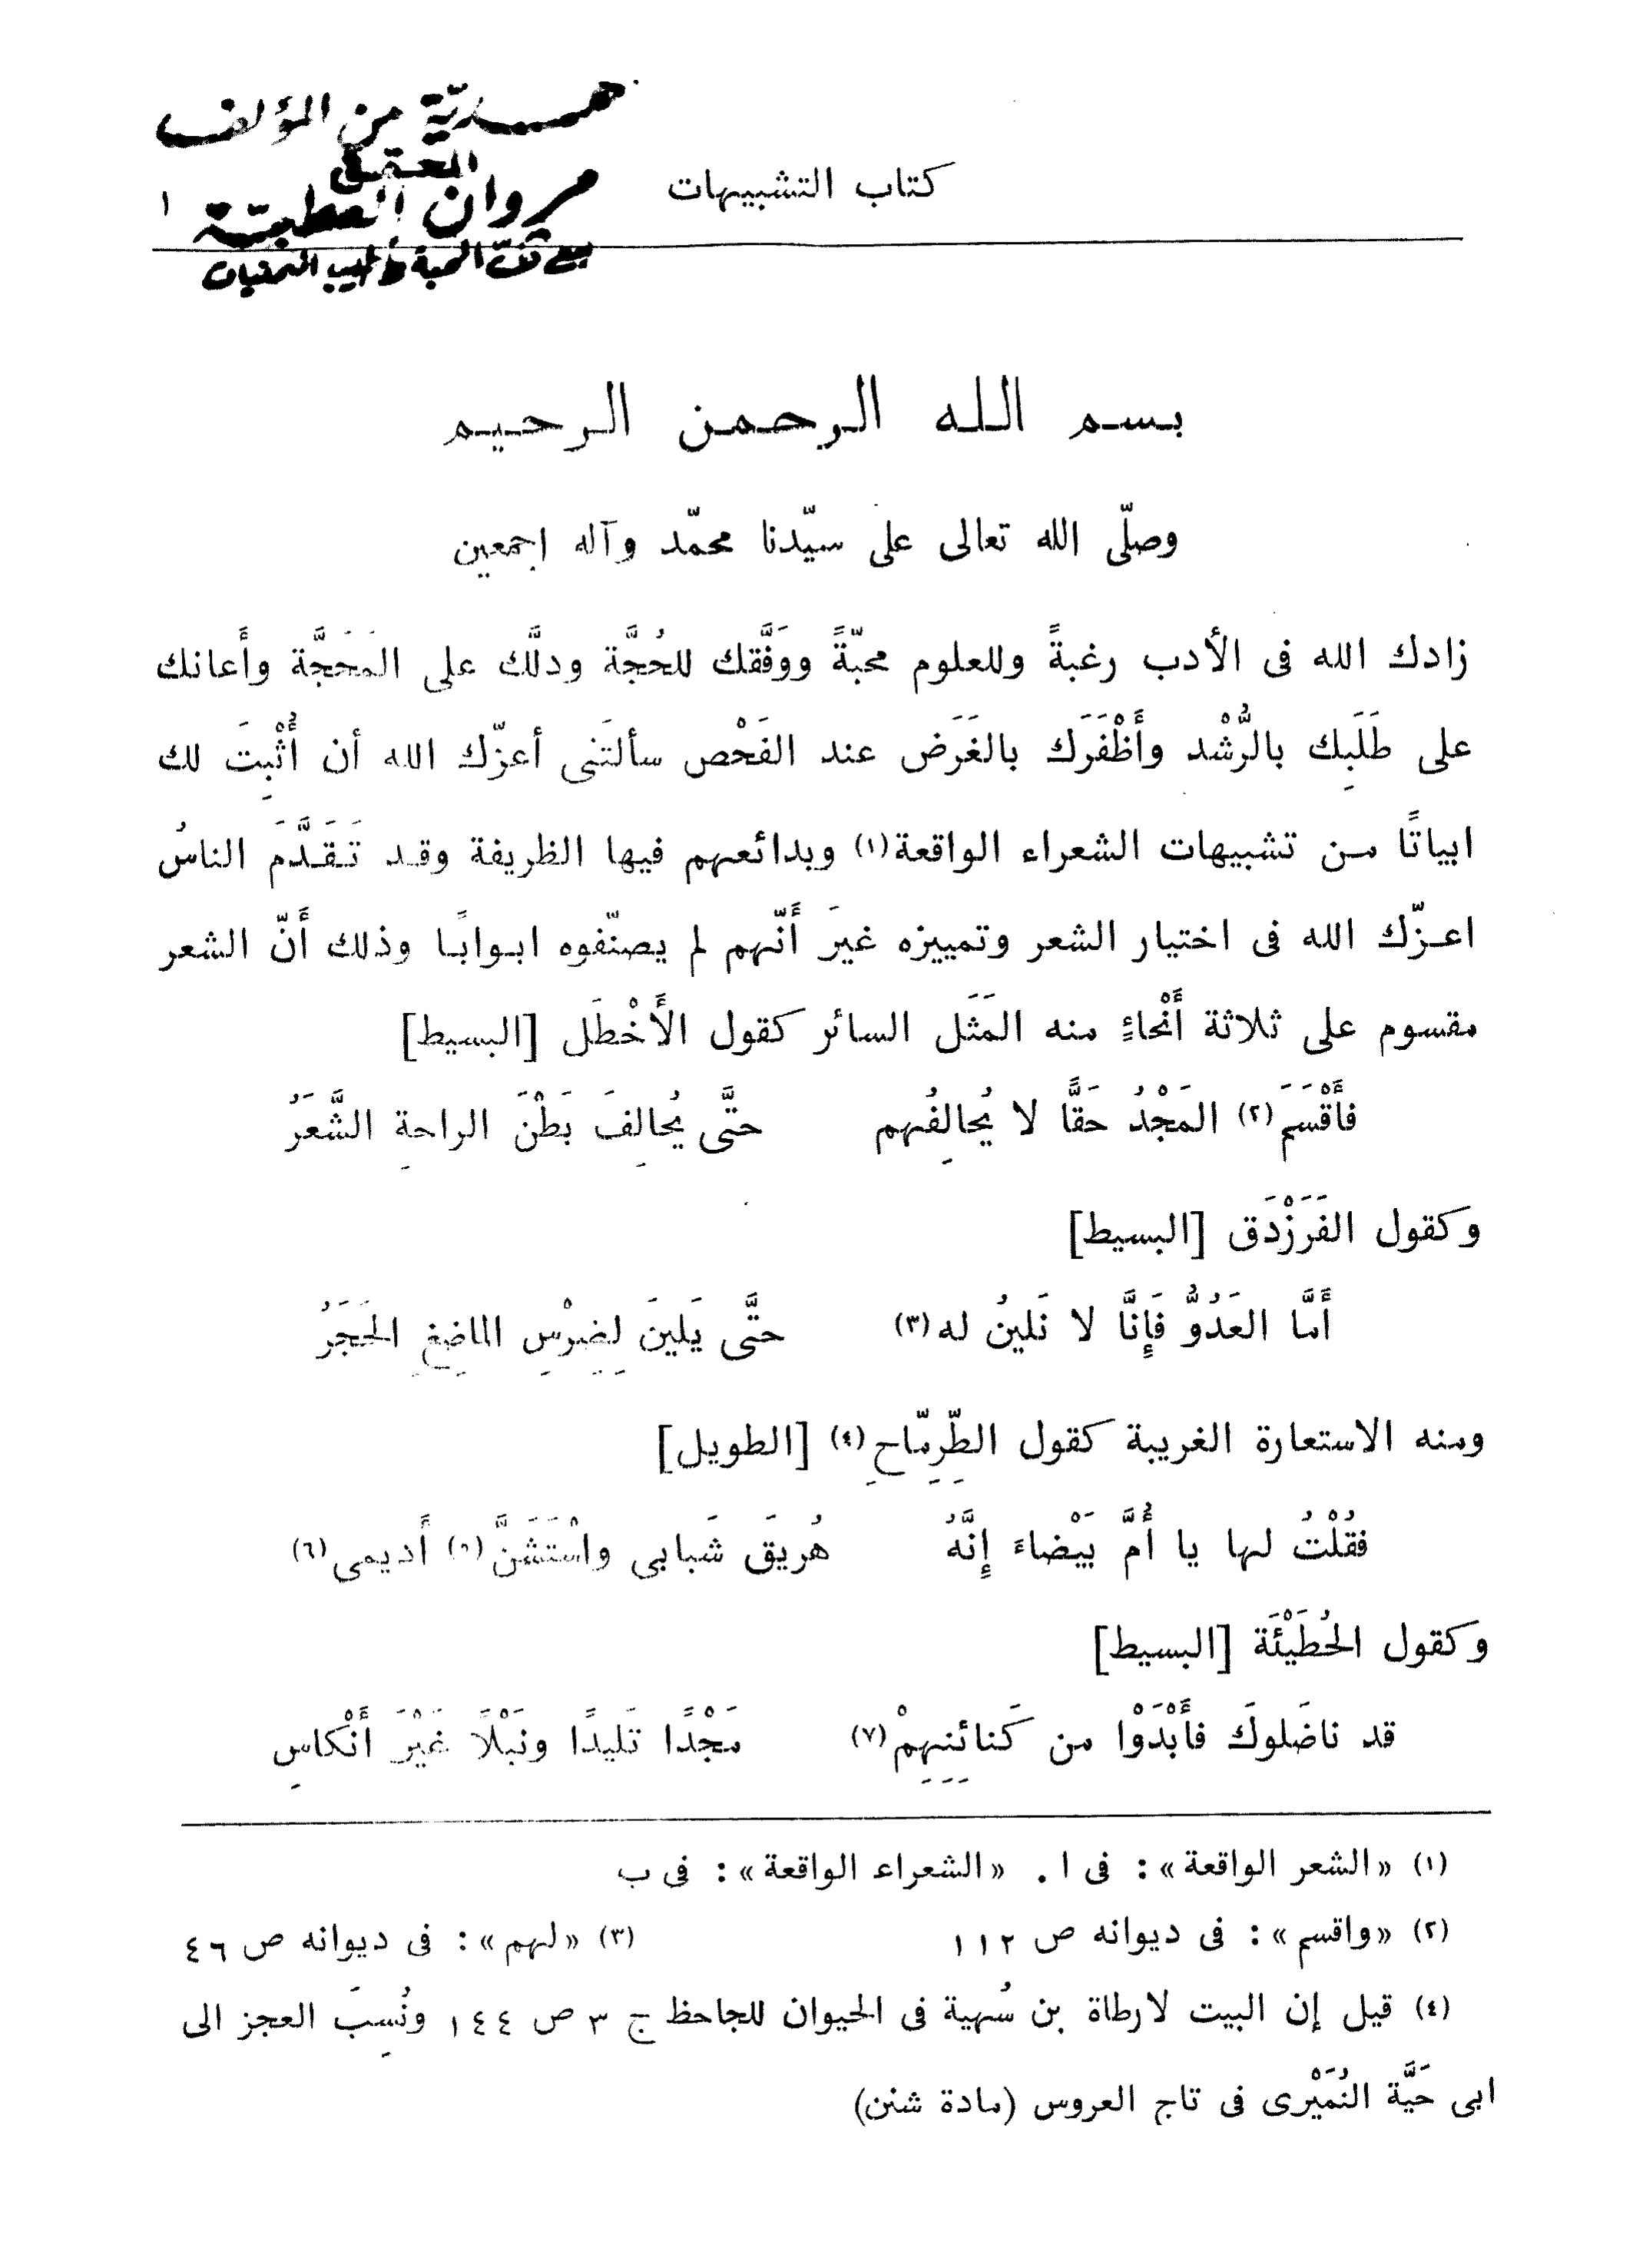 هديّة من المؤلف
المحقق
كتاب التشبيهات
١
مروان العطيّة
مع المحبة وأطيب التمنيات
بسم الله الرحمن الرحيم
وصلّى الله تعالى على سيّدنا محمّد وآله اجمعين
زادك الله فى الأدب رغبةً وللعلوم محبّةً ووَفَّقك للحُجَّة ودلَّك على المَحَجَّة وأَعانك
على طَلَبِك بالرُّشْد وأَظْفَرَك بالغَرَض عند الفَحْص سألتَنى أعزّك الله أن أُثْبِتَ لك
ابياتًا من تشبيهات الشعراء الواقعة(١) وبدائعهم فيها الظريفة وقد تَقَدَّمَ الناسُ
اعزّك الله فى اختيار الشعر وتمييزه غيرَ أَنّهم لم يصنّفوه ابوابًا وذلك أَنّ الشعر
مقسوم على ثلاثة أَنْحاءٍ منه المَثَل السائر كقول الأَخْطَل [البسيط]
فأَقْسَمَ(٢) المَجْدُ حَقًّا لا يُحالِفُهم حتَّى يُحالِفَ بَطْنَ الراحةِ الشَّعَرُ
وكقول الفَرَزْدَق [البسيط]
أَمَّا العَدُوُّ فَإِنَّا لا نَلينُ له(٣) حتَّى يَلينَ لِضِرْسِ الماضِغِ الحَجَرُ
ومنه الاستعارة الغريبة كقول الطِّرِمّاحِ(٤) [الطويل]
فقُلْتُ لها يا أُمَّ بَيْضاءَ إِنَّهُ هُريقَ شَبابى واسْتَشَنَّ(٥) أَديمى(٦)
وكقول الحُطَيْئَة [البسيط]
قد ناضَلوكَ فأَبْدَوْا من كَنائِنِهِمْ(٧) مَجْدًا تَليدًا ونَبْلًا غَيْرَ أَنْكاسِ
(١) «الشعر الواقعة» : فى ا . «الشعراء الواقعة» : فى ب
(٢) «واقسم» : فى ديوانه ص ١١٢ (٣) «لهم» : فى ديوانه ص ٤٦
(٤) قيل إن البيت لارطاة بن سُهية فى الحيوان للجاحظ ج ٣ ص ١٤٤ ونُسِبَ العجز الى
ابى حَيَّة النُمَيْرى فى تاج العروس (مادة شنن)